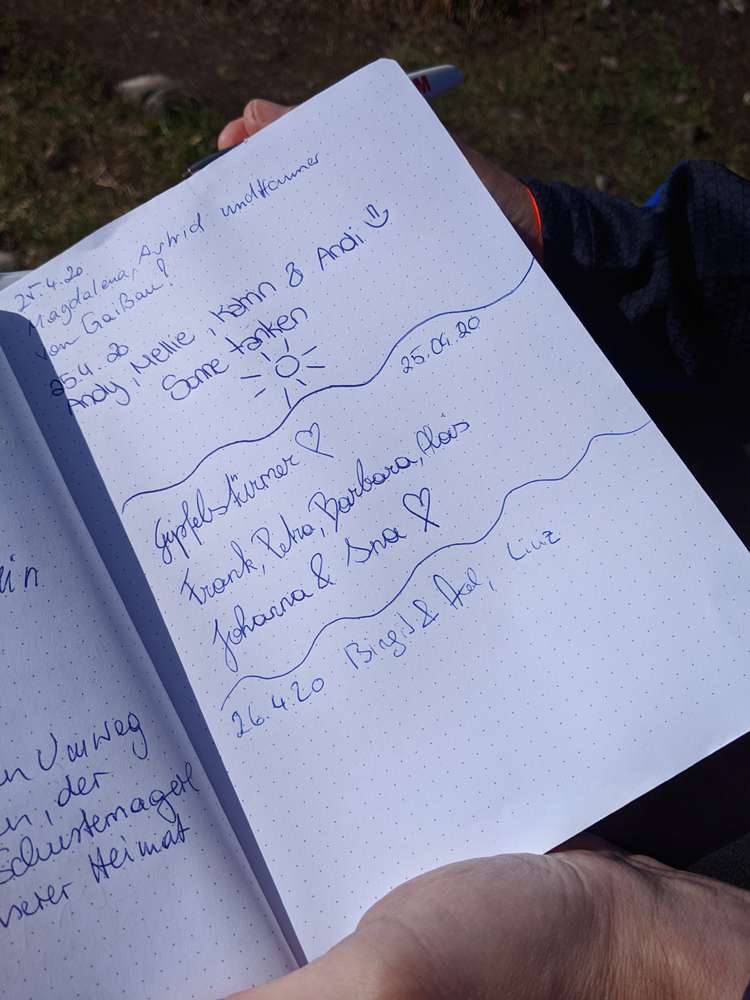 lin
en Umweg
en, der
Schusternagerl
nserer Heimat
25.4.20
Magdalena, Astrid und Hannes
von Gaißau!
25.4.20
Andy, Mellie, Katrin & Andi
Sonne tanken
25.04.20
Gipfelstürmer
Frank, Petra, Barbara, Alois
Johanna & Ina
26.4.20 Birgit & Axel, Linz